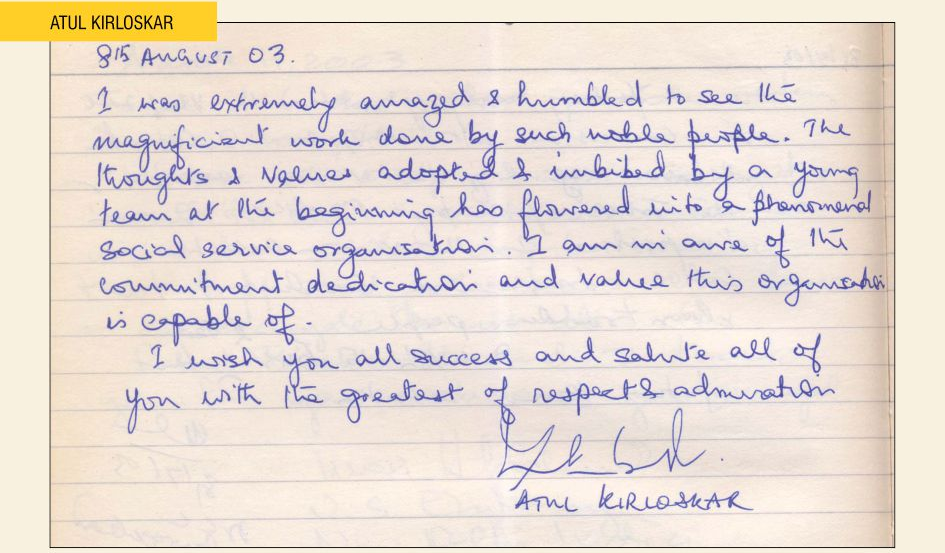 ATUL KIRLOSKAR
8th AUGUST 03.
I was extremely amazed & humbled to see the
magnificient work done by such noble people. The
thoughts & values adopted & imbibed by a young
team at the beginning has flowered into a phenomenal
social service organisation. I am in awe of the
commitment dedication and value this organisation
is capable of.
I wish you all success and salute all of
you with the greatest of respect & admiration
ATUL KIRLOSKAR